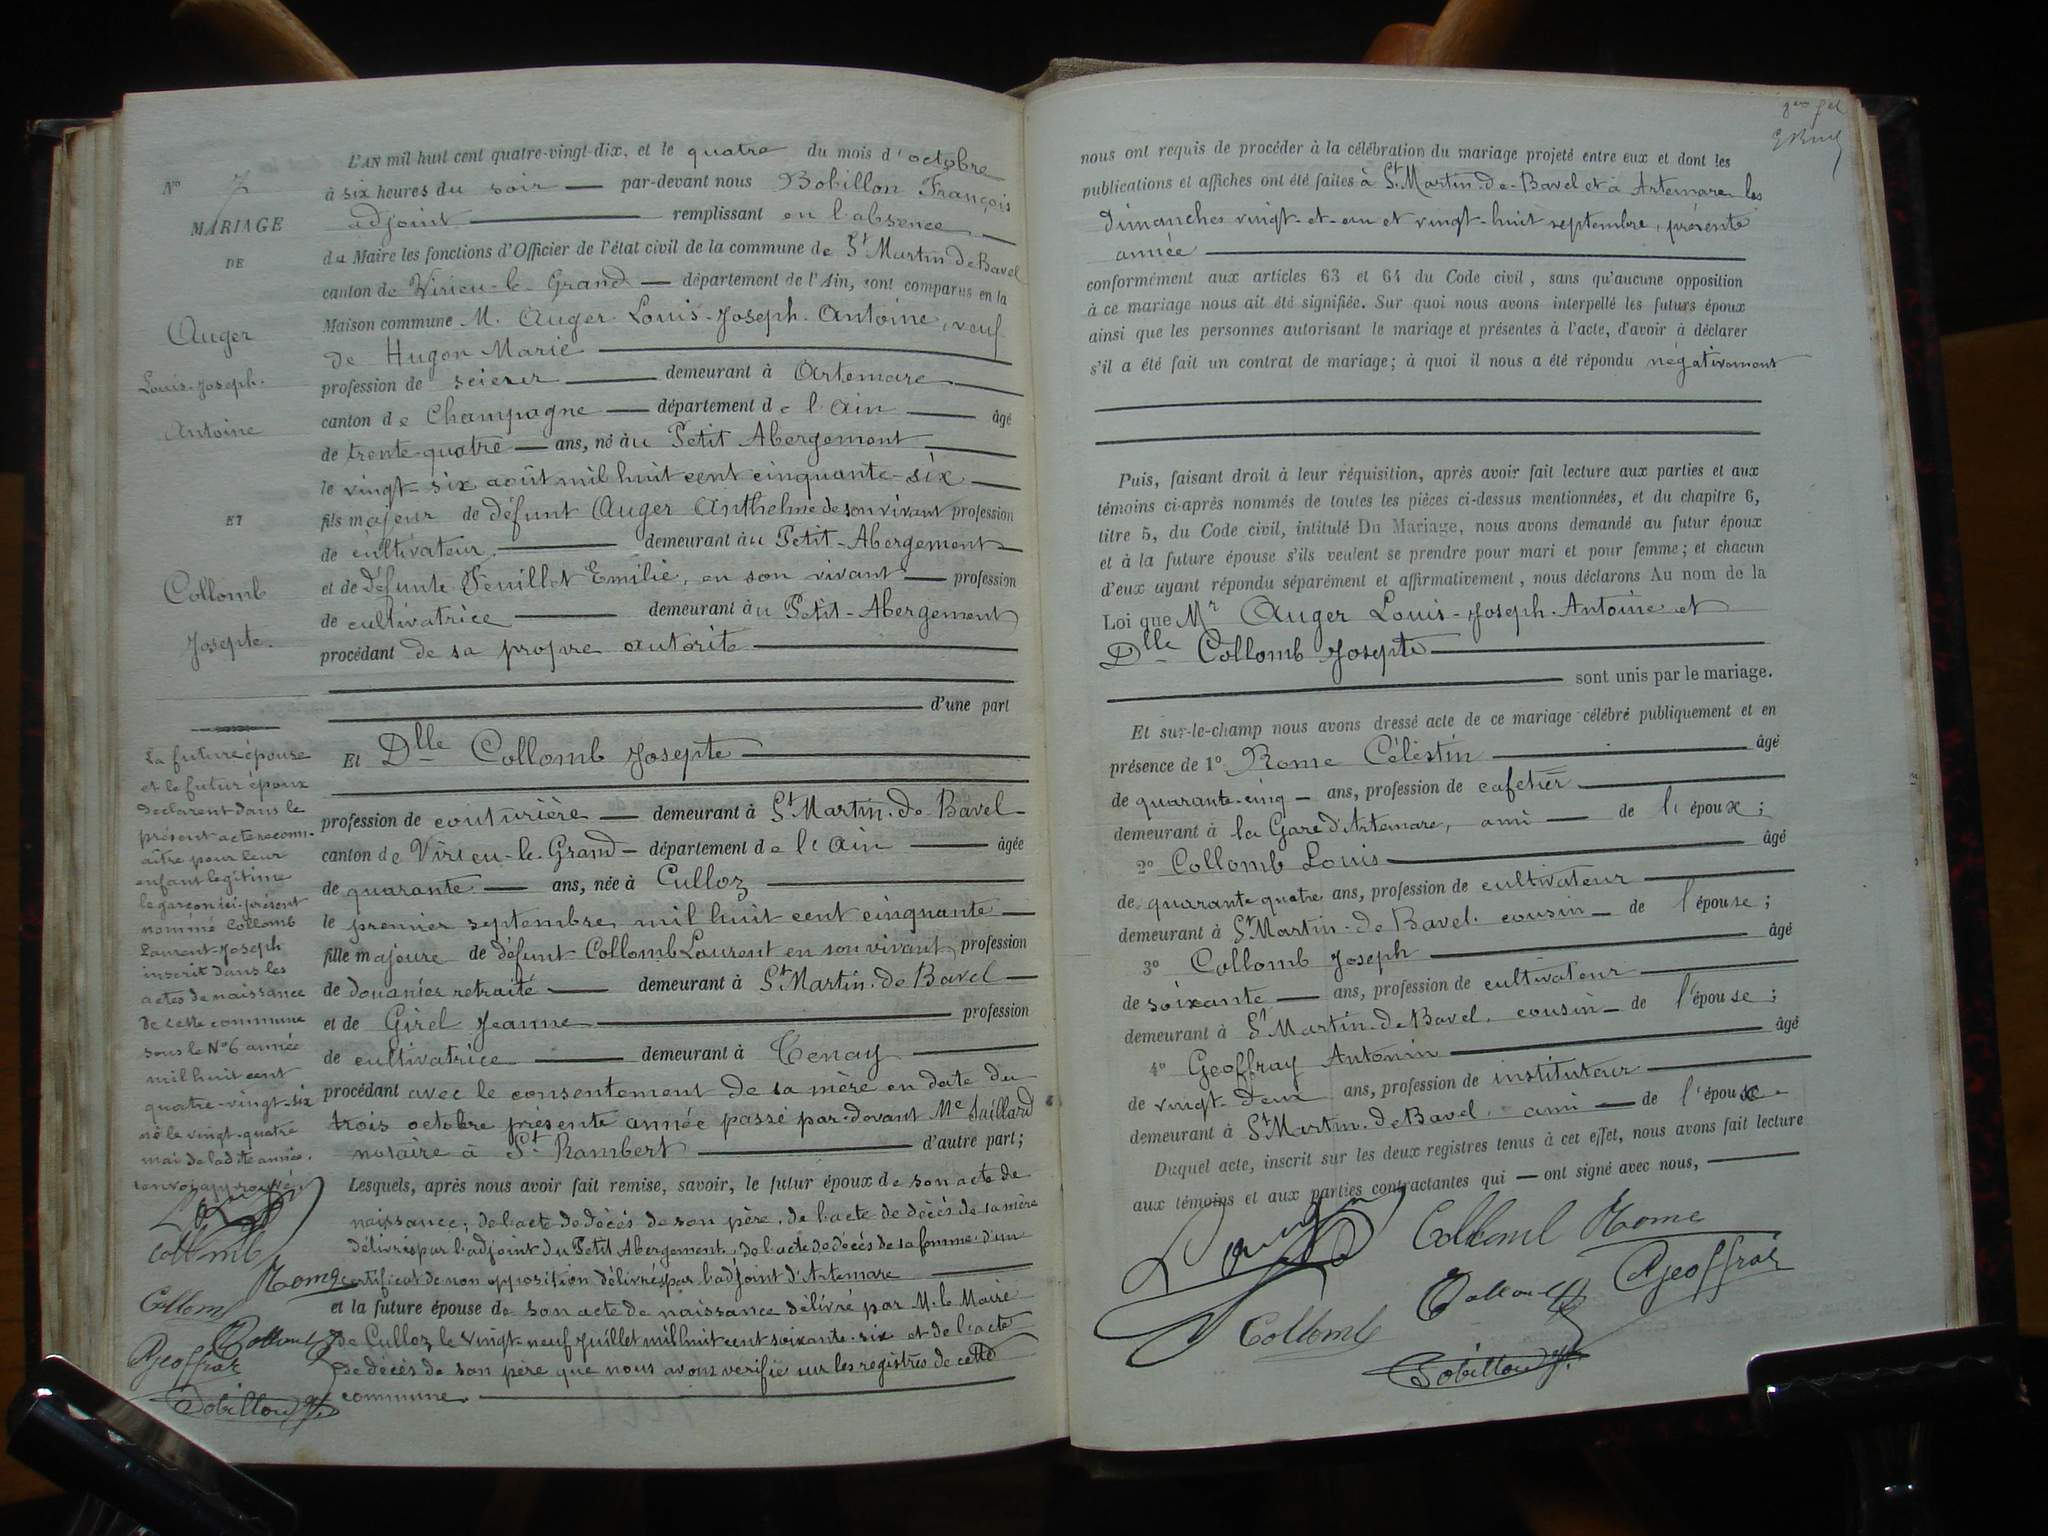 N° 7
MARIAGE
DE
Auger
Louis-Joseph-
Antoine
ET
Collomb
Josepte.
La future épouse
et le futur époux
déclarent dans le
présent acte reconn-
aître pour leur
enfant légitime
le garçon ici-présent
nommé Collomb
Laurent-Joseph
inscrit dans les
actes de naissance
de cette commune
sous le N°6 année
mil huit cent
quatre-vingt-six
né le vingt-quatre
mai de ladite année.
renvoi approuvé.
Collomb
Rome
Collomb
Geoffray
Bobillon
L'AN mil huit cent quatre-vingt-dix, et le quatre du mois d'octobre
à six heures du soir — par-devant nous Bobillon François
adjoint — remplissant en l'absence —
du Maire les fonctions d'Officier de l'état civil de la commune de St Martin de Bavel
canton de Virieu-le-Grand — département de l'Ain, sont comparus en la
Maison commune M. Auger Louis-Joseph-Antoine, veuf
de Hugon Marie —
profession de scieur — demeurant à Artemare —
canton de Champagne — département de l'Ain — âgé
de trente-quatre — ans, né au Petit Abergement —
le vingt-six août mil huit cent cinquante-six —
fils majeur de défunt Auger Anthelme de son vivant profession
de cultivateur — demeurant au Petit-Abergement —
et de défunte Feuillet Emilie, en son vivant — profession
de cultivatrice — demeurant au Petit-Abergement
procédant de sa propre autorité —
d'une part
Et Dlle Collomb Josepte —
profession de couturière — demeurant à St Martin-de-Bavel —
canton de Virieu-le-Grand — département de l'Ain — âgée
de quarante — ans, née à Culloz —
le premier septembre mil huit cent cinquante —
fille majeure de défunt Collomb Laurent en son vivant profession
de douanier retraité — demeurant à St Martin-de-Bavel —
et de Girel Jeanne — profession
de cultivatrice — demeurant à Tenay —
procédant avec le consentement de sa mère en date du
trois octobre présente année passé par-devant Me
notaire à St Rambert — d'autre part;
Lesquels, après nous avoir fait remise, savoir, le futur époux de son acte de
naissance; de l'acte de décès de son père, de l'acte de décès de sa mère
délivrés par l'adjoint du Petit Abergement, de l'acte de décès de sa femme d'un
certificat de non opposition délivrés par l'adjoint d'Artemare —
et la future épouse de son acte de naissance délivré par M. le Maire
de Culloz le vingt-neuf Juillet mil huit cent soixante-six et de l'acte
de décès de son père que nous avons verifié sur les registres de cette
commune —
nous ont requis de procéder à la célébration du mariage projeté entre eux et dont les
publications et affiches ont été faites à St Martin-de-Bavel et à Artemare les
dimanches vingt-et-un et vingt-huit septembre, présente
année —
conformément aux articles 63 et 64 du Code civil, sans qu'aucune opposition
à ce mariage nous ait été signifiée. Sur quoi nous avons interpellé les futurs époux
ainsi que les personnes autorisant le mariage et présentes à l'acte, d'avoir à déclarer
s'il a été fait un contrat de mariage; à quoi il nous a été répondu négativement
Puis, faisant droit à leur réquisition, après avoir fait lecture aux parties et aux
témoins ci-après nommés de toutes les pièces ci-dessus mentionnées, et du chapitre 6,
titre 5, du Code civil, intitulé Du Mariage, nous avons demandé au futur époux
et à la future épouse s'ils veulent se prendre pour mari et pour femme; et chacun
d'eux ayant répondu séparément et affirmativement, nous déclarons Au nom de la
Loi que Mr Auger Louis-Joseph-Antoine et
Dlle Collomb Josepte —
sont unis par le mariage.
Et sur-le-champ nous avons dressé acte de ce mariage célébré publiquement et en
présence de 1° Rome Célestin — âgé
de quarante-cinq — ans, profession de cafetier —
demeurant à la Gare d'Artemare, ami — de l'époux;
2° Collomb Louis — âgé
de quarante quatre ans, profession de cultivateur —
demeurant à St Martin-de-Bavel. cousin — de l'épouse;
3° Collomb Joseph — âgé
de soixante — ans, profession de cultivateur —
demeurant à St Martin-de-Bavel. cousin — de l'épouse;
4° Geoffray Antonin — âgé
de vingt-deux ans, profession de instituteur —
demeurant à St Martin-de-Bavel. ami — de l'épouse.
Duquel acte, inscrit sur les deux registres tenus à cet effet, nous avons fait lecture
aux témoins et aux parties contractantes qui — ont signé avec nous, —
Collomb Rome
Geoffray
Collomb
Bobillon